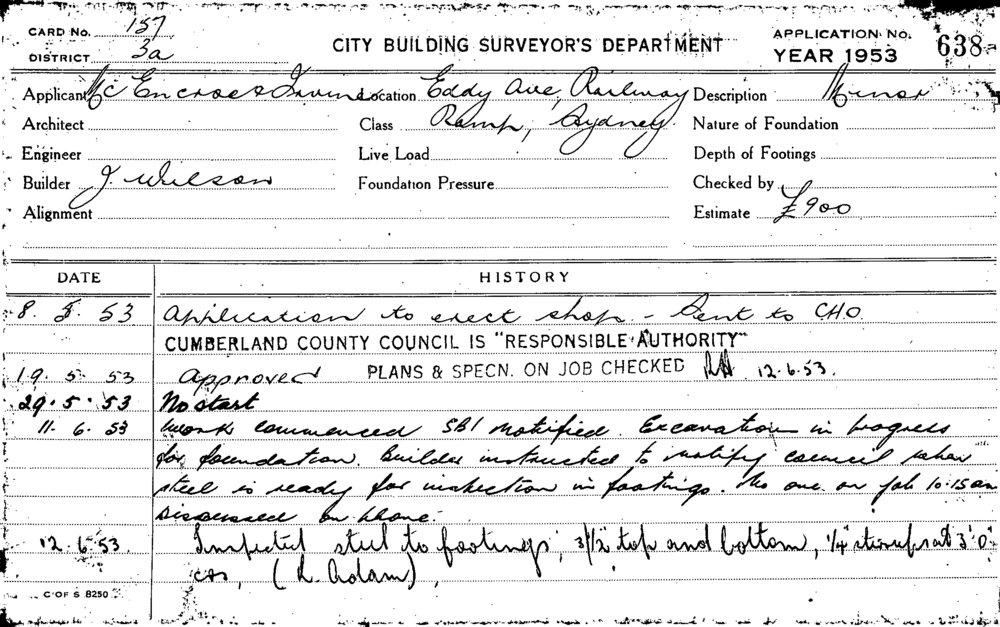 CARD No. 157
DISTRICT 3a
CITY BUILDING SURVEYOR'S DEPARTMENT
APPLICATION No. 638
YEAR 1953
Applicant McEncroe & Irvine Location Eddy Ave, Railway Description Minor
Architect Class Ramp, Sydney. Nature of Foundation
Engineer Live Load Depth of Footings
Builder J. Wilson Foundation Pressure Checked by
Alignment Estimate £900
DATE HISTORY
8. 5. 53 Application to erect shop - Sent to C.H.O
CUMBERLAND COUNTY COUNCIL IS "RESPONSIBLE AUTHORITY"
19. 5. 53 Approved PLANS & SPECN. ON JOB CHECKED 12.6.53.
29. 5. 53 No start
11. 6. 53 Work commenced SBI notified. Excavation in progress
for foundation. Builder instructed to notify council when
steel is ready for inspection in footings. No one on job 10.15 am
Discussed on phone.
12. 6. 53. Inspected steel to footings, 3/1/2" top and bottom, 1/4" stirrups at 3'0"
crs, (L. Adam),
C OF S 8250